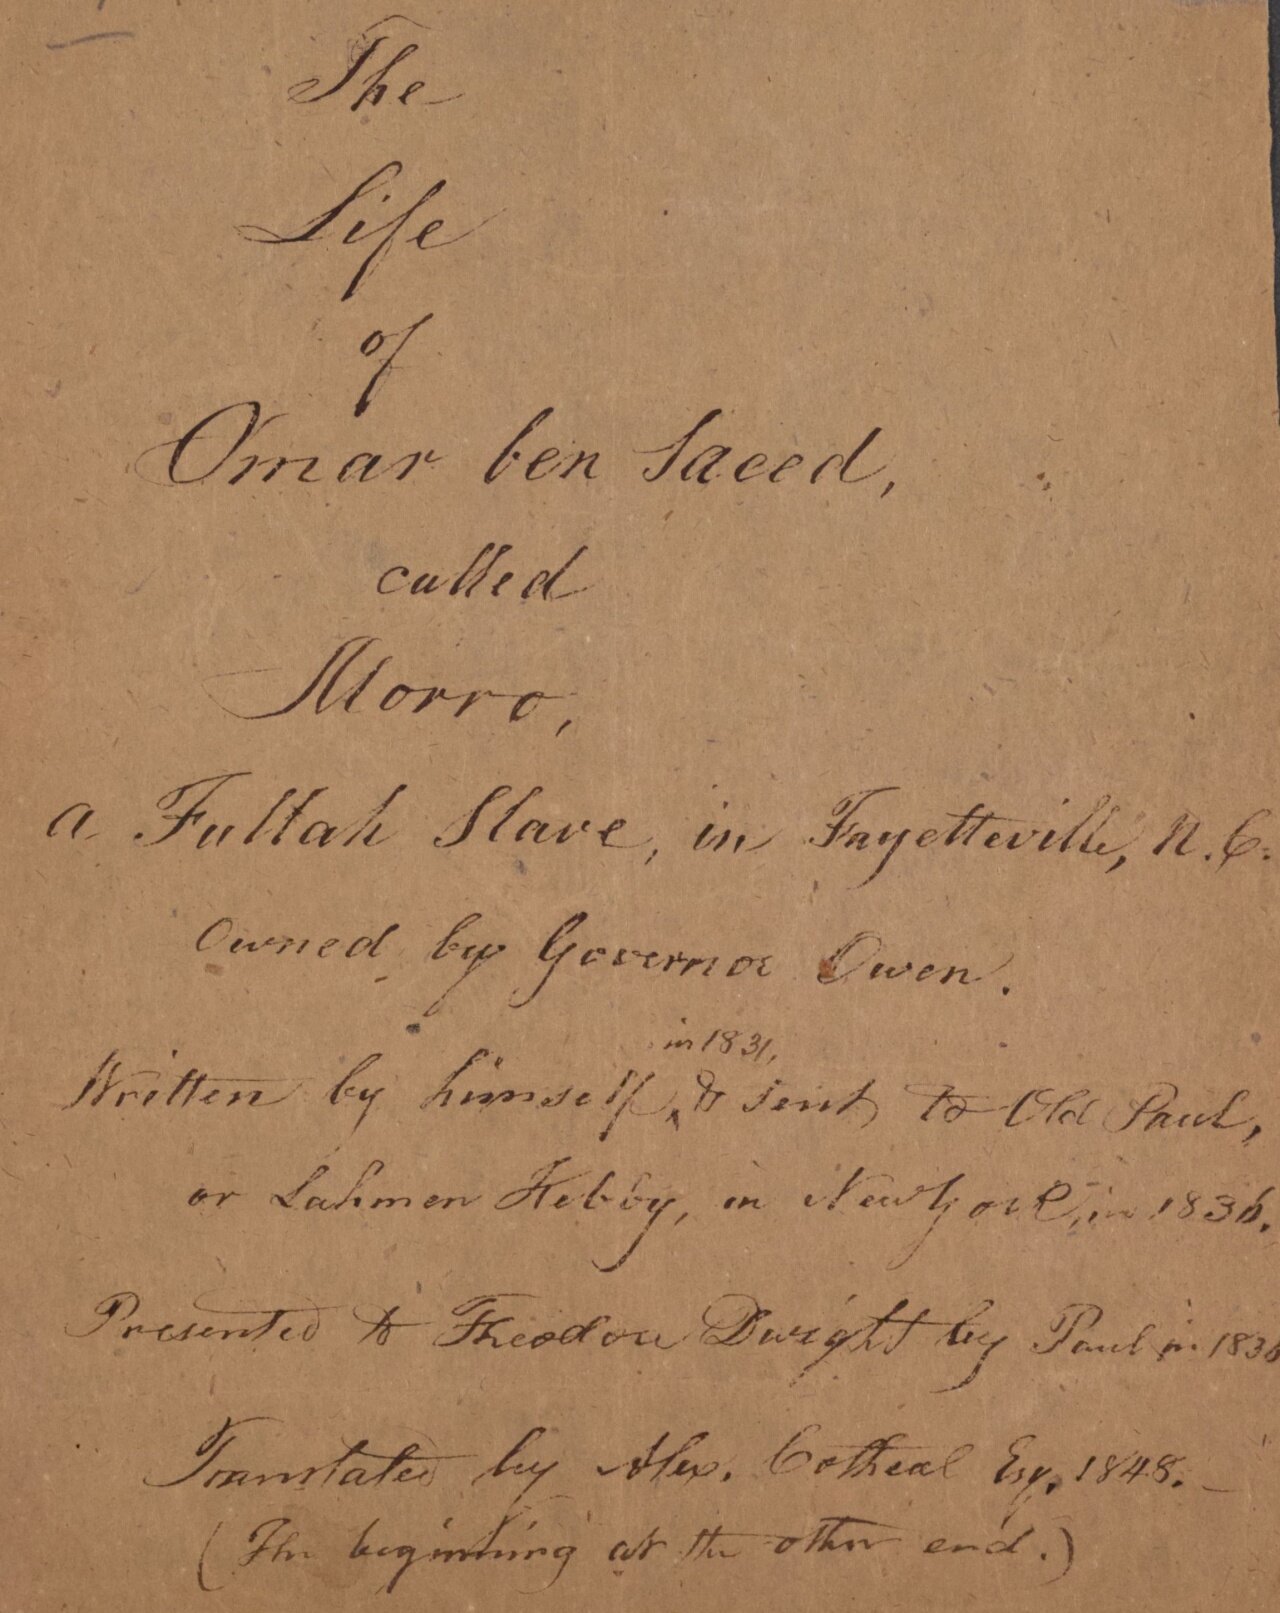 The
Life
of
Omar ben Saeed,
called
Morro,
a Fullah Slave, in Fayetteville, N.C.
Owned by Governor Owen.
in 1831,
Written by himself ‸ & sent to Old Paul,
or Lahmen Kebby, in New York, in 1836.
Presented to Theodore Dwight by Paul in 1836
Translated by Alex. Cotheal Esq. 1848. –
(The beginning at the other end.)